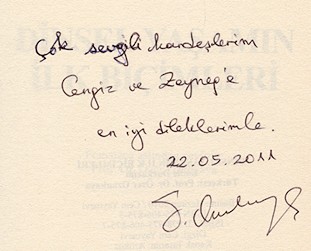 Çok sevgili kardeşlerim
Cengiz ve Zeynep'e
en iyi dileklerimle.
22.05.2011